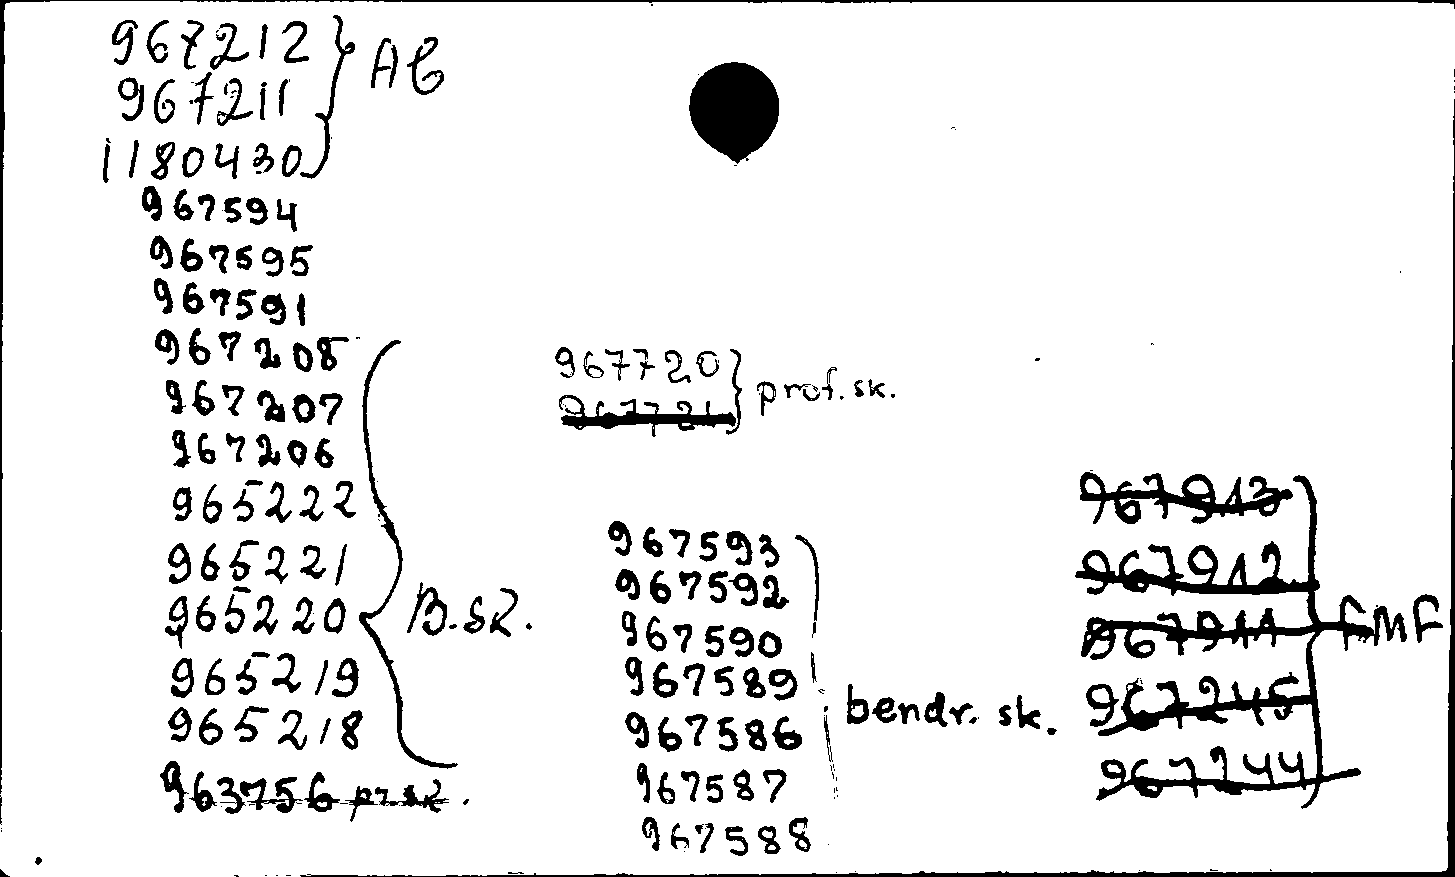 967212
967211
1180430
AB
967594
967595
967591
967208
967207
967206
965222
965221
965220
965219
965218
B.sk.
963756 pr.sk.
967720
967721
prof.sk.
967593
967592
967590
967589
967586
967587
967588
bendr. sk.
967913
967912
967911
967245
967244
FMF